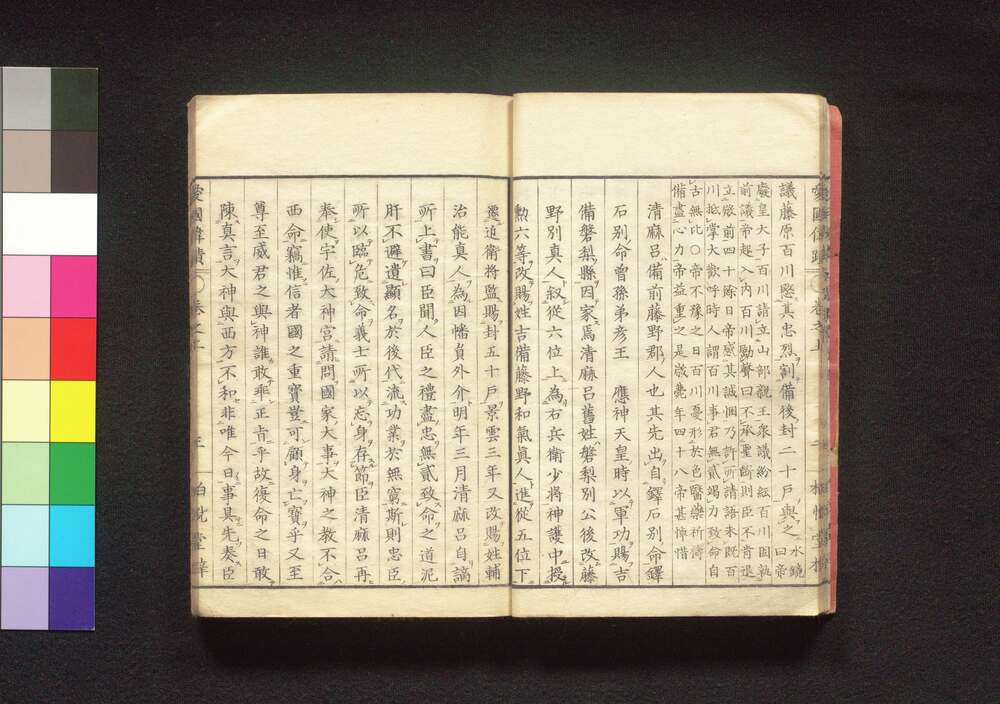 議藤原百川愍其忠烈割備後封二十戶與之水鏡曰帝
廢皇太子百川請立山部親王衆議紛紜百川固執
前議帝起入內百川勵聲曰不承聖斷則臣不肯退
立殿前四十餘日帝感其誠悃乃許所請語未既百
川抵掌大歡呼時人謂百川事君無貳竭力致命自
古無比○帝不豫之日百川憂形於色醫藥祈禱
備盡心力帝益重之是歲薨年四十八帝甚悼惜
清麻呂備前藤野郡人也其先出自鐸石別命鐸
石別命曾孫弟彥王 應神天皇時以軍功賜吉
備磐梨縣因家焉清麻呂舊姓磐梨別公後改藤
野別真人叙從六位上為右兵衛少將神護中授
勲六等改賜姓吉備藤野和氣眞人進從五位下
遷近衛將監賜封五十戶景雲三年又改賜姓輔
治能真人為因幡員外介明年三月清麻呂自謫
所上書曰臣聞人臣之禮盡忠無貳致命之道泥
肝不避遺顯名於後代流功業於無窮斯則忠臣
所以臨危致命義士所以忘身存節臣清麻呂再
奉使宇佐大神宮請問國家大事大神之教不合
西命竊惟信者國之重寶豈可顧身亡寶乎又至
尊至威君之與神誰敢乖正旨乎故復命之日敢
陳真言大神與西方不和非唯今日事其先奏臣
愛國偉績 卷之 三